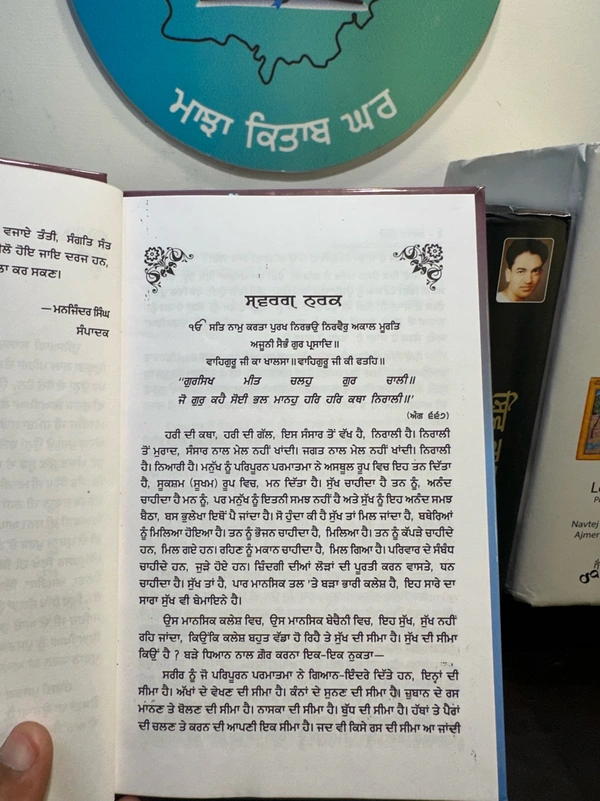 ਮਾਝਾ ਕਿਤਾਬ ਘਰ
ਵਜਾਏ ਤੰਤੀ, ਸੰਗਤਿ ਸੰਤ
ਲੋ ਹੋਇ ਜਾਇ ਦਰਜ ਹਨ,
ਲਾ ਕਰ ਸਕਣ।
—ਮਨਜਿੰਦਰ ਸਿੰਘ
ਸੰਪਾਦਕ
ਸ੍ਵਰਗ ਨਰਕ
ੴ ਸਤਿ ਨਾਮੁ ਕਰਤਾ ਪੁਰਖ ਨਿਰਭਉ ਨਿਰਵੈਰੁ ਅਕਾਲ ਮੂਰਤਿ
ਅਜੂਨੀ ਸੈਭੰ ਗੁਰ ਪ੍ਰਸਾਦਿ॥
ਵਾਹਿਗੁਰੂ ਜੀ ਕਾ ਖਾਲਸਾ॥ ਵਾਹਿਗੁਰੂ ਜੀ ਕੀ ਫਤਹਿ॥
"ਗੁਰਸਿਖ ਮੀਤ ਚਲਹੁ ਗੁਰ ਚਾਲੀ॥
ਜੋ ਗੁਰੁ ਕਹੈ ਸੋਈ ਭਲ ਮਾਨਹੁ ਹਰਿ ਹਰਿ ਕਥਾ ਨਿਰਾਲੀ॥'
(ਅੰਗ ੬੬੭)
ਹਰੀ ਦੀ ਕਥਾ, ਹਰੀ ਦੀ ਗੱਲ, ਇਸ ਸੰਸਾਰ ਤੋਂ ਵੱਖ ਹੈ, ਨਿਰਾਲੀ ਹੈ। ਨਿਰਾਲੀ
ਤੋਂ ਮੁਰਾਦ, ਸੰਸਾਰ ਨਾਲ ਮੇਲ ਨਹੀਂ ਖਾਂਦੀ। ਜਗਤ ਨਾਲ ਮੇਲ ਨਹੀਂ ਖਾਂਦੀ। ਨਿਰਾਲੀ
ਹੈ। ਨਿਆਰੀ ਹੈ। ਮਨੁੱਖ ਨੂੰ ਪਰਿਪੂਰਨ ਪਰਮਾਤਮਾ ਨੇ ਅਸਥੂਲ ਰੂਪ ਵਿਚ ਇਹ ਤਨ ਦਿੱਤਾ
ਹੈ, ਸੂਕਸ਼ਮ (ਸੂਖਮ) ਰੂਪ ਵਿਚ, ਮਨ ਦਿੱਤਾ ਹੈ। ਸੁੱਖ ਚਾਹੀਦਾ ਹੈ ਤਨ ਨੂੰ, ਅਨੰਦ
ਚਾਹੀਦਾ ਹੈ ਮਨ ਨੂੰ, ਪਰ ਮਨੁੱਖ ਨੂੰ ਇਤਨੀ ਸਮਝ ਨਹੀਂ ਹੈ ਅਤੇ ਸੁੱਖ ਨੂੰ ਇਹ ਅਨੰਦ ਸਮਝ
ਬੈਠਾ, ਬਸ ਭੁਲੇਖਾ ਇਥੋਂ ਪੈ ਜਾਂਦਾ ਹੈ। ਸੋ ਹੁੰਦਾ ਕੀ ਹੈ ਸੁੱਖ ਤਾਂ ਮਿਲ ਜਾਂਦਾ ਹੈ, ਬਥੇਰਿਆਂ
ਨੂੰ ਮਿਲਿਆ ਹੋਇਆ ਹੈ। ਤਨ ਨੂੰ ਭੋਜਨ ਚਾਹੀਦਾ ਹੈ, ਮਿਲਿਆ ਹੈ। ਤਨ ਨੂੰ ਕੱਪੜੇ ਚਾਹੀਦੇ
ਹਨ, ਮਿਲ ਗਏ ਹਨ। ਰਹਿਣ ਨੂੰ ਮਕਾਨ ਚਾਹੀਦਾ ਹੈ, ਮਿਲ ਗਿਆ ਹੈ। ਪਰਿਵਾਰ ਦੇ ਸੰਬੰਧ
ਚਾਹੀਦੇ ਹਨ, ਜੁੜੇ ਹੋਏ ਹਨ। ਜ਼ਿੰਦਗੀ ਦੀਆਂ ਲੋੜਾਂ ਦੀ ਪੂਰਤੀ ਕਰਨ ਵਾਸਤੇ, ਧਨ
ਚਾਹੀਦਾ ਹੈ। ਸੁੱਖ ਤਾਂ ਹੈ, ਪਾਰ ਮਾਨਸਿਕ ਤਲ 'ਤੇ ਬੜਾ ਭਾਰੀ ਕਲੇਸ਼ ਹੈ, ਇਹ ਸਾਰੇ ਦਾ
ਸਾਰਾ ਸੁੱਖ ਵੀ ਬੇਮਾਇਨੇ ਹੈ।
ਉਸ ਮਾਨਸਿਕ ਕਲੇਸ਼ ਵਿਚ, ਉਸ ਮਾਨਸਿਕ ਬੇਚੈਨੀ ਵਿਚ, ਇਹ ਸੁੱਖ, ਸੁੱਖ ਨਹੀਂ
ਰਹਿ ਜਾਂਦਾ, ਕਿਉਂਕਿ ਕਲੇਸ਼ ਬਹੁਤ ਵੱਡਾ ਹੋ ਰਿਹੈ ਤੇ ਸੁੱਖ ਦੀ ਸੀਮਾ ਹੈ। ਸੁੱਖ ਦੀ ਸੀਮਾ
ਕਿਉਂ ਹੈ ? ਬੜੇ ਧਿਆਨ ਨਾਲ ਗ਼ੌਰ ਕਰਨਾ ਇਕ-ਇਕ ਨੁਕਤਾ—
ਸਰੀਰ ਨੂੰ ਜੋ ਪਰਿਪੂਰਨ ਪਰਮਾਤਮਾ ਨੇ ਗਿਆਨ-ਇੰਦਰੇ ਦਿੱਤੇ ਹਨ, ਇਨ੍ਹਾਂ ਦੀ
ਸੀਮਾ ਹੈ। ਅੱਖਾਂ ਦੇ ਵੇਖਣ ਦੀ ਸੀਮਾ ਹੈ। ਕੰਨਾਂ ਦੇ ਸੁਣਣ ਦੀ ਸੀਮਾ ਹੈ। ਜ਼ੁਬਾਨ ਦੇ ਰਸ
ਮਾਨਣ ਤੇ ਬੋਲਣ ਦੀ ਸੀਮਾ ਹੈ। ਨਾਸਕਾ ਦੀ ਸੀਮਾ ਹੈ। ਬੁੱਧ ਦੀ ਸੀਮਾ ਹੈ। ਹੱਥਾਂ ਤੇ ਪੈਰਾਂ
ਦੀ ਚਲਣ ਤੇ ਕਰਨ ਦੀ ਆਪਣੀ ਇਕ ਸੀਮਾ ਹੈ। ਜਦ ਵੀ ਕਿਸੇ ਰਸ ਦੀ ਸੀਮਾ ਆ ਜਾਂਦੀ
Navtej
Ajmer